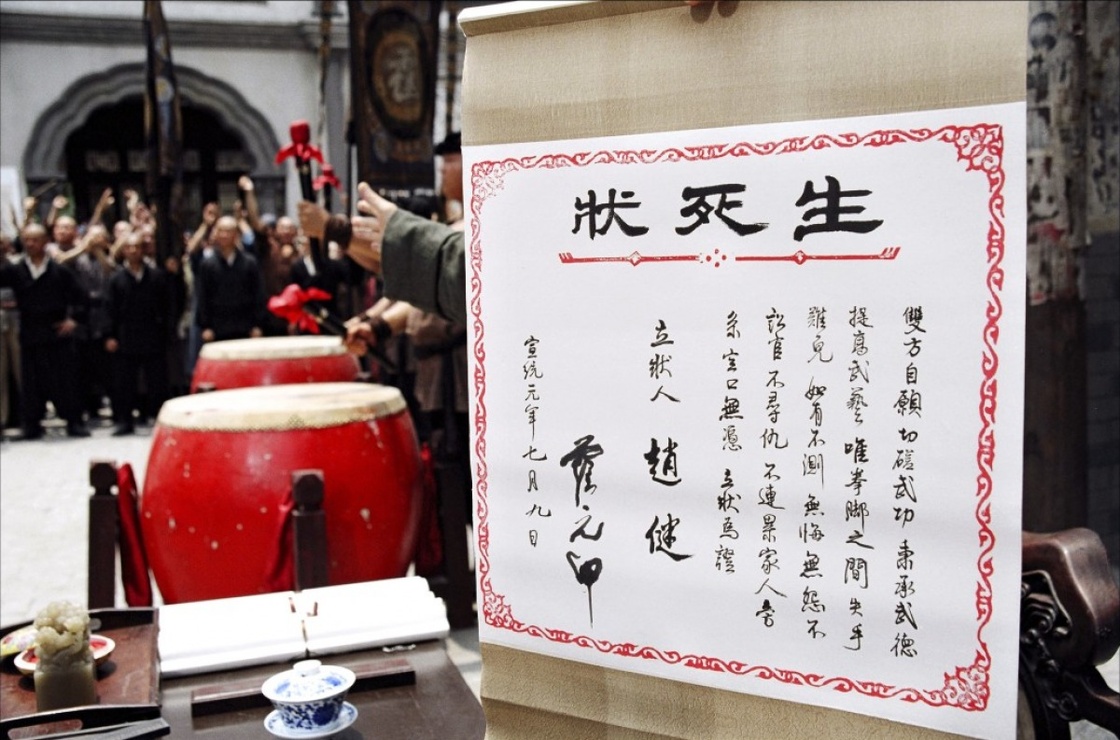 生死狀
雙方自願切磋武功秉承武德
提高武藝唯拳腳之間失手
難免如有不測無悔無怨不
訟官不尋仇不連累家人旁
系空口無憑立狀為證
立狀人趙健
霍元甲
宣統元年七月九日